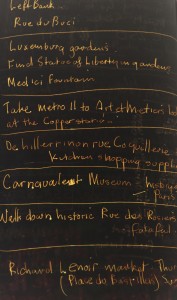 Left Bank
Rue du Buci
Luxemburg gardens
Find Statue of Liberty in gardens
Medici Fountain
Take metro 11 to Art et Metiers
at the Copper station
Dehillerrin on rue Coquilliere
Kitchen shopping suppli
Carnavalest Museum = history
Paris
Walk down historic Rue des Rosiers
falafal
Richard Lenoir market Thur
(Place de bastillen) Su